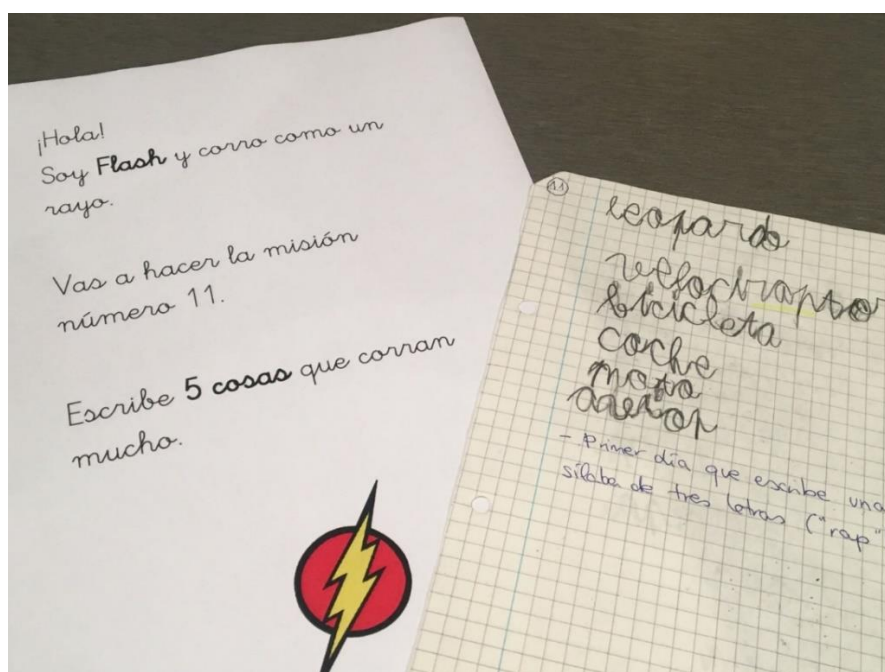 ¡Hola!
Soy Flash y corro como un
rayo.
Vas a hacer la misión
número 11.
Escribe 5 cosas que corran
mucho.
11
leopardo
velociraptor
bicicleta
coche
moto
- Primer día que escribe una
sílaba de tres letras ("rap"